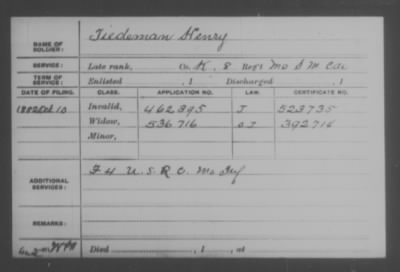 NAME OF SOLDIER: Tiedeman Henry
SERVICE: Late rank, Co. K, 8 Reg't Mo S M Cav
TERM OF SERVICE: Enlisted , 1 Discharged , 1
DATE OF FILING. CLASS. APPLICATION NO. LAW. CERTIFICATE NO.
10 Invalid, 462395 J 523735
Widow, 536716 392714
Minor,
ADDITIONAL SERVICES: F 4 U.S.R.C. Mo Inf
REMARKS:
Died , 1 , at